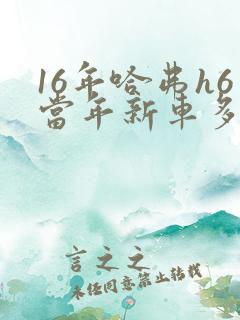 16年哈弗h6
當年新車多
言之之
未经同意禁止转载